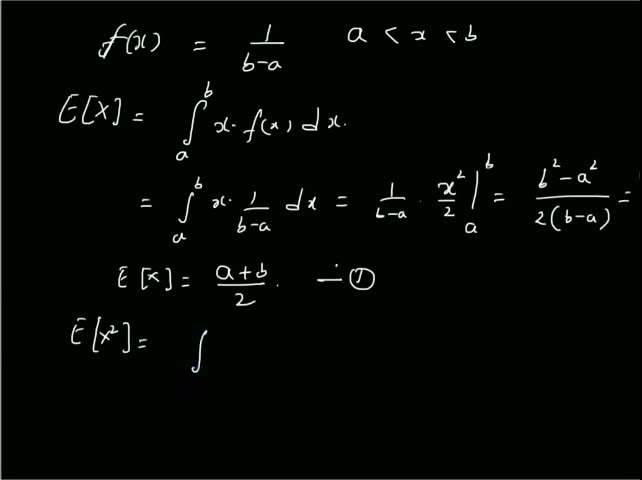 f(x) = 1/(b-a) a < x < b
E[X] = ∫_a^b x. f(x) dx.
= ∫_a^b x. 1/(b-a) dx = 1/(b-a) . x²/2 |_a^b = (b²-a²)/(2(b-a)) =
E[x] = (a+b)/2. — ①
E[x²] = ∫